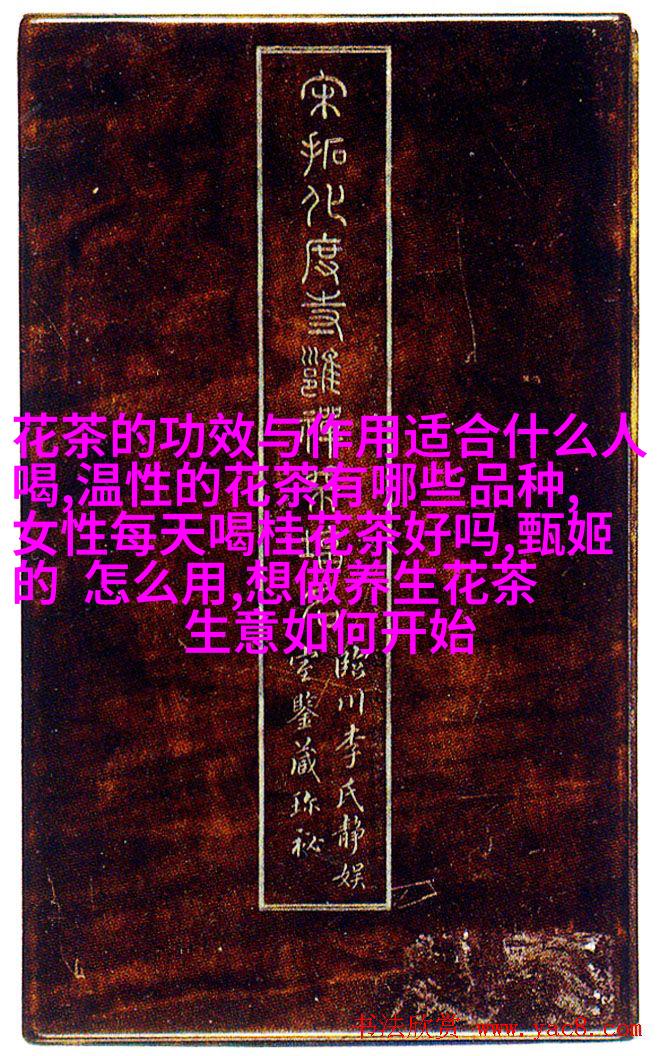 宋拓化度寺雝禪師塔
臨川李氏靜娱
室鑒藏珎祕
花茶的功效与作用适合什么人
喝,温性的花茶有哪些品种,
女性每天喝桂花茶好吗,甄姬
的 怎么用,想做养生花茶
生意如何开始
书法欣赏 www.yac8.com